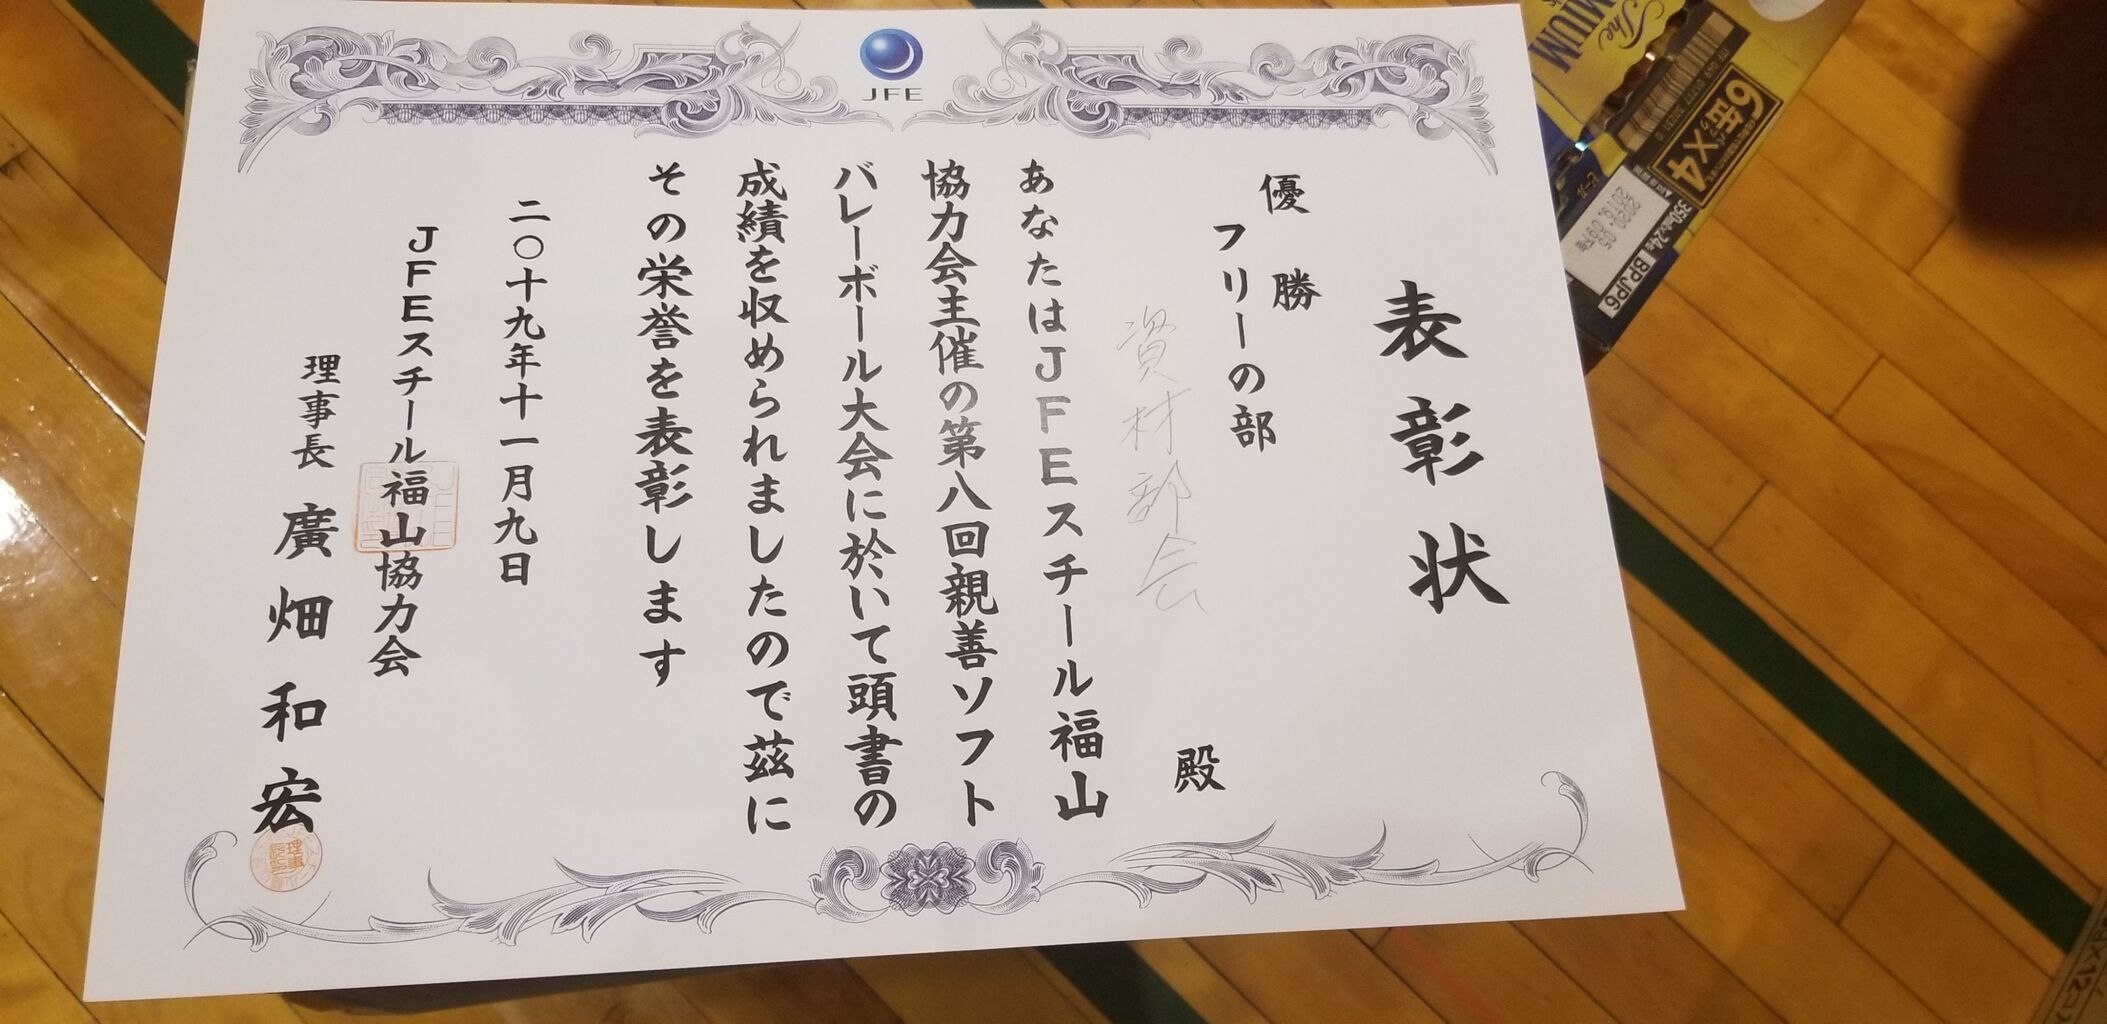 JFE
表彰状
優勝
フリーの部
資材部会 殿
あなたはJFEスチール福山
協力会主催の第八回親善ソフト
バレーボール大会に於いて頭書の
成績を収められましたので茲に
その栄誉を表彰します
二〇十九年十一月九日
JFEスチール福山協力会
理事長 廣畑和宏
The
MIUM
6缶パック×4
ビール
350ml×24缶
BPJP6